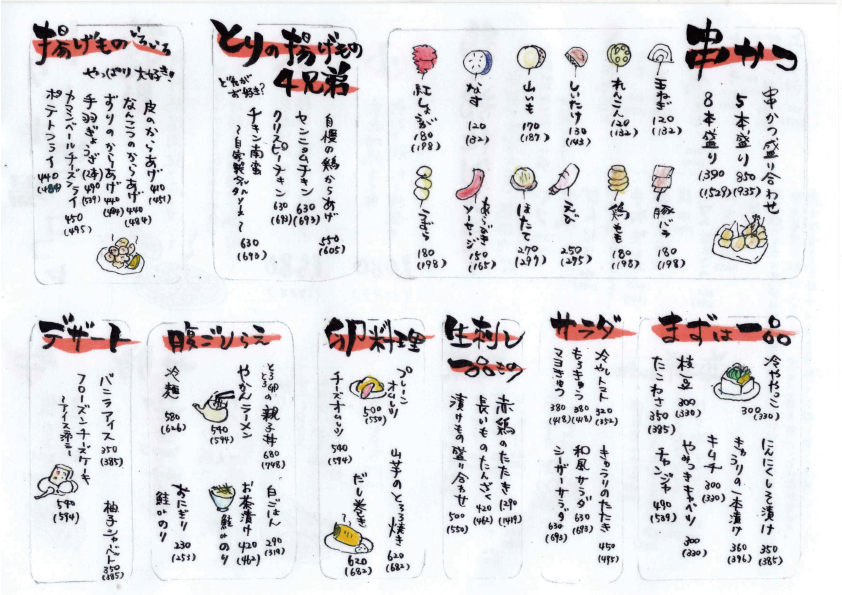 串かつ
串かつ盛り合わせ
5本盛り 850 (935)
8本盛り 1390 (1529)
玉ねぎ 120 (132)
れんこん 120 (132)
しいたけ 130 (143)
山いも 170 (187)
なす 120 (132)
紅しょうが 180 (198)
豚バラ 180 (198)
鶏もも 180 (198)
えび 250 (275)
ほたて 270 (297)
あらびきソーセージ 150 (165)
うずら 180 (198)
とりの揚げもの
4兄弟
どれがお好き?
自慢の鶏からあげ 550 (605)
ヤンニョムチキン 630 (693)
クリスピーチキン 630 (693)
チキン南蛮
〜自家製タルタルソース〜
630 (693)
揚げものいろいろ
やっぱり大好き!
皮のからあげ 410 (451)
なんこつのからあげ 440 (484)
ずりのからあげ 440 (484)
手羽ぎょうざ(2本) 490 (539)
カマンベールチーズフライ 450 (495)
ポテトフライ 440 (484)
まずは一品
冷ややっこ 300 (330)
枝豆 300 (330)
たこわさ 350 (385)
にんにくしそ漬け 350 (385)
きゅうりの一本漬け 360 (396)
キムチ 300 (330)
やみつきキャベツ 300 (330)
チャンジャ 490 (539)
サラダ
冷やしトマト 320 (352)
もろきゅう 380 (418)
マヨきゅう 380 (418)
きゅうりのたたき 450 (495)
和風サラダ 630 (693)
シーザーサラダ 630 (693)
生刺し
一品もの
赤鶏のたたき 1290 (1419)
長いものたんざく 420 (462)
漬けもの盛り合わせ 500 (550)
卵料理
プレーンオムレツ 500 (550)
チーズオムレツ 540 (594)
山芋のとろろ焼き 620 (682)
だし巻き 620 (682)
腹ごしらえ
とろろ卵の親子丼 680 (748)
やかんラーメン 540 (594)
冷麺 580 (626)
白ごはん 290 (319)
お茶漬け 鮭or のり 420 (462)
おにぎり 鮭or のり 230 (253)
デザート
バニラアイス 350 (385)
フローズンチーズケーキ
〜アイス添え〜
540 (594)
柚子シャーベット 350 (385)